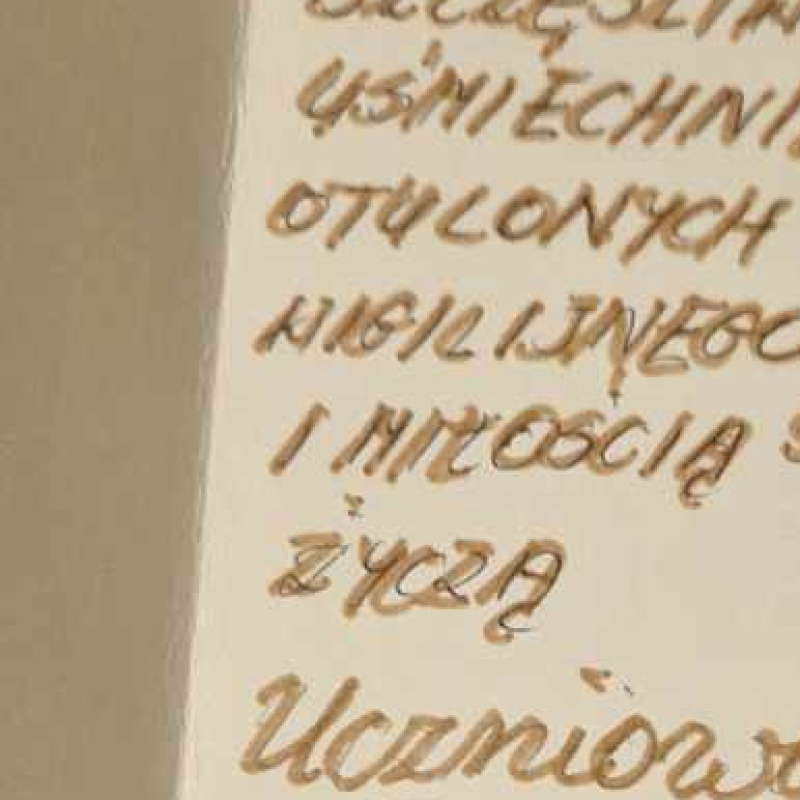 UŚMIECHNI
OTULONYCH
WIGILIJNEGO
I MIŁOŚCIĄ
ŻYCZĄ
Uczniow